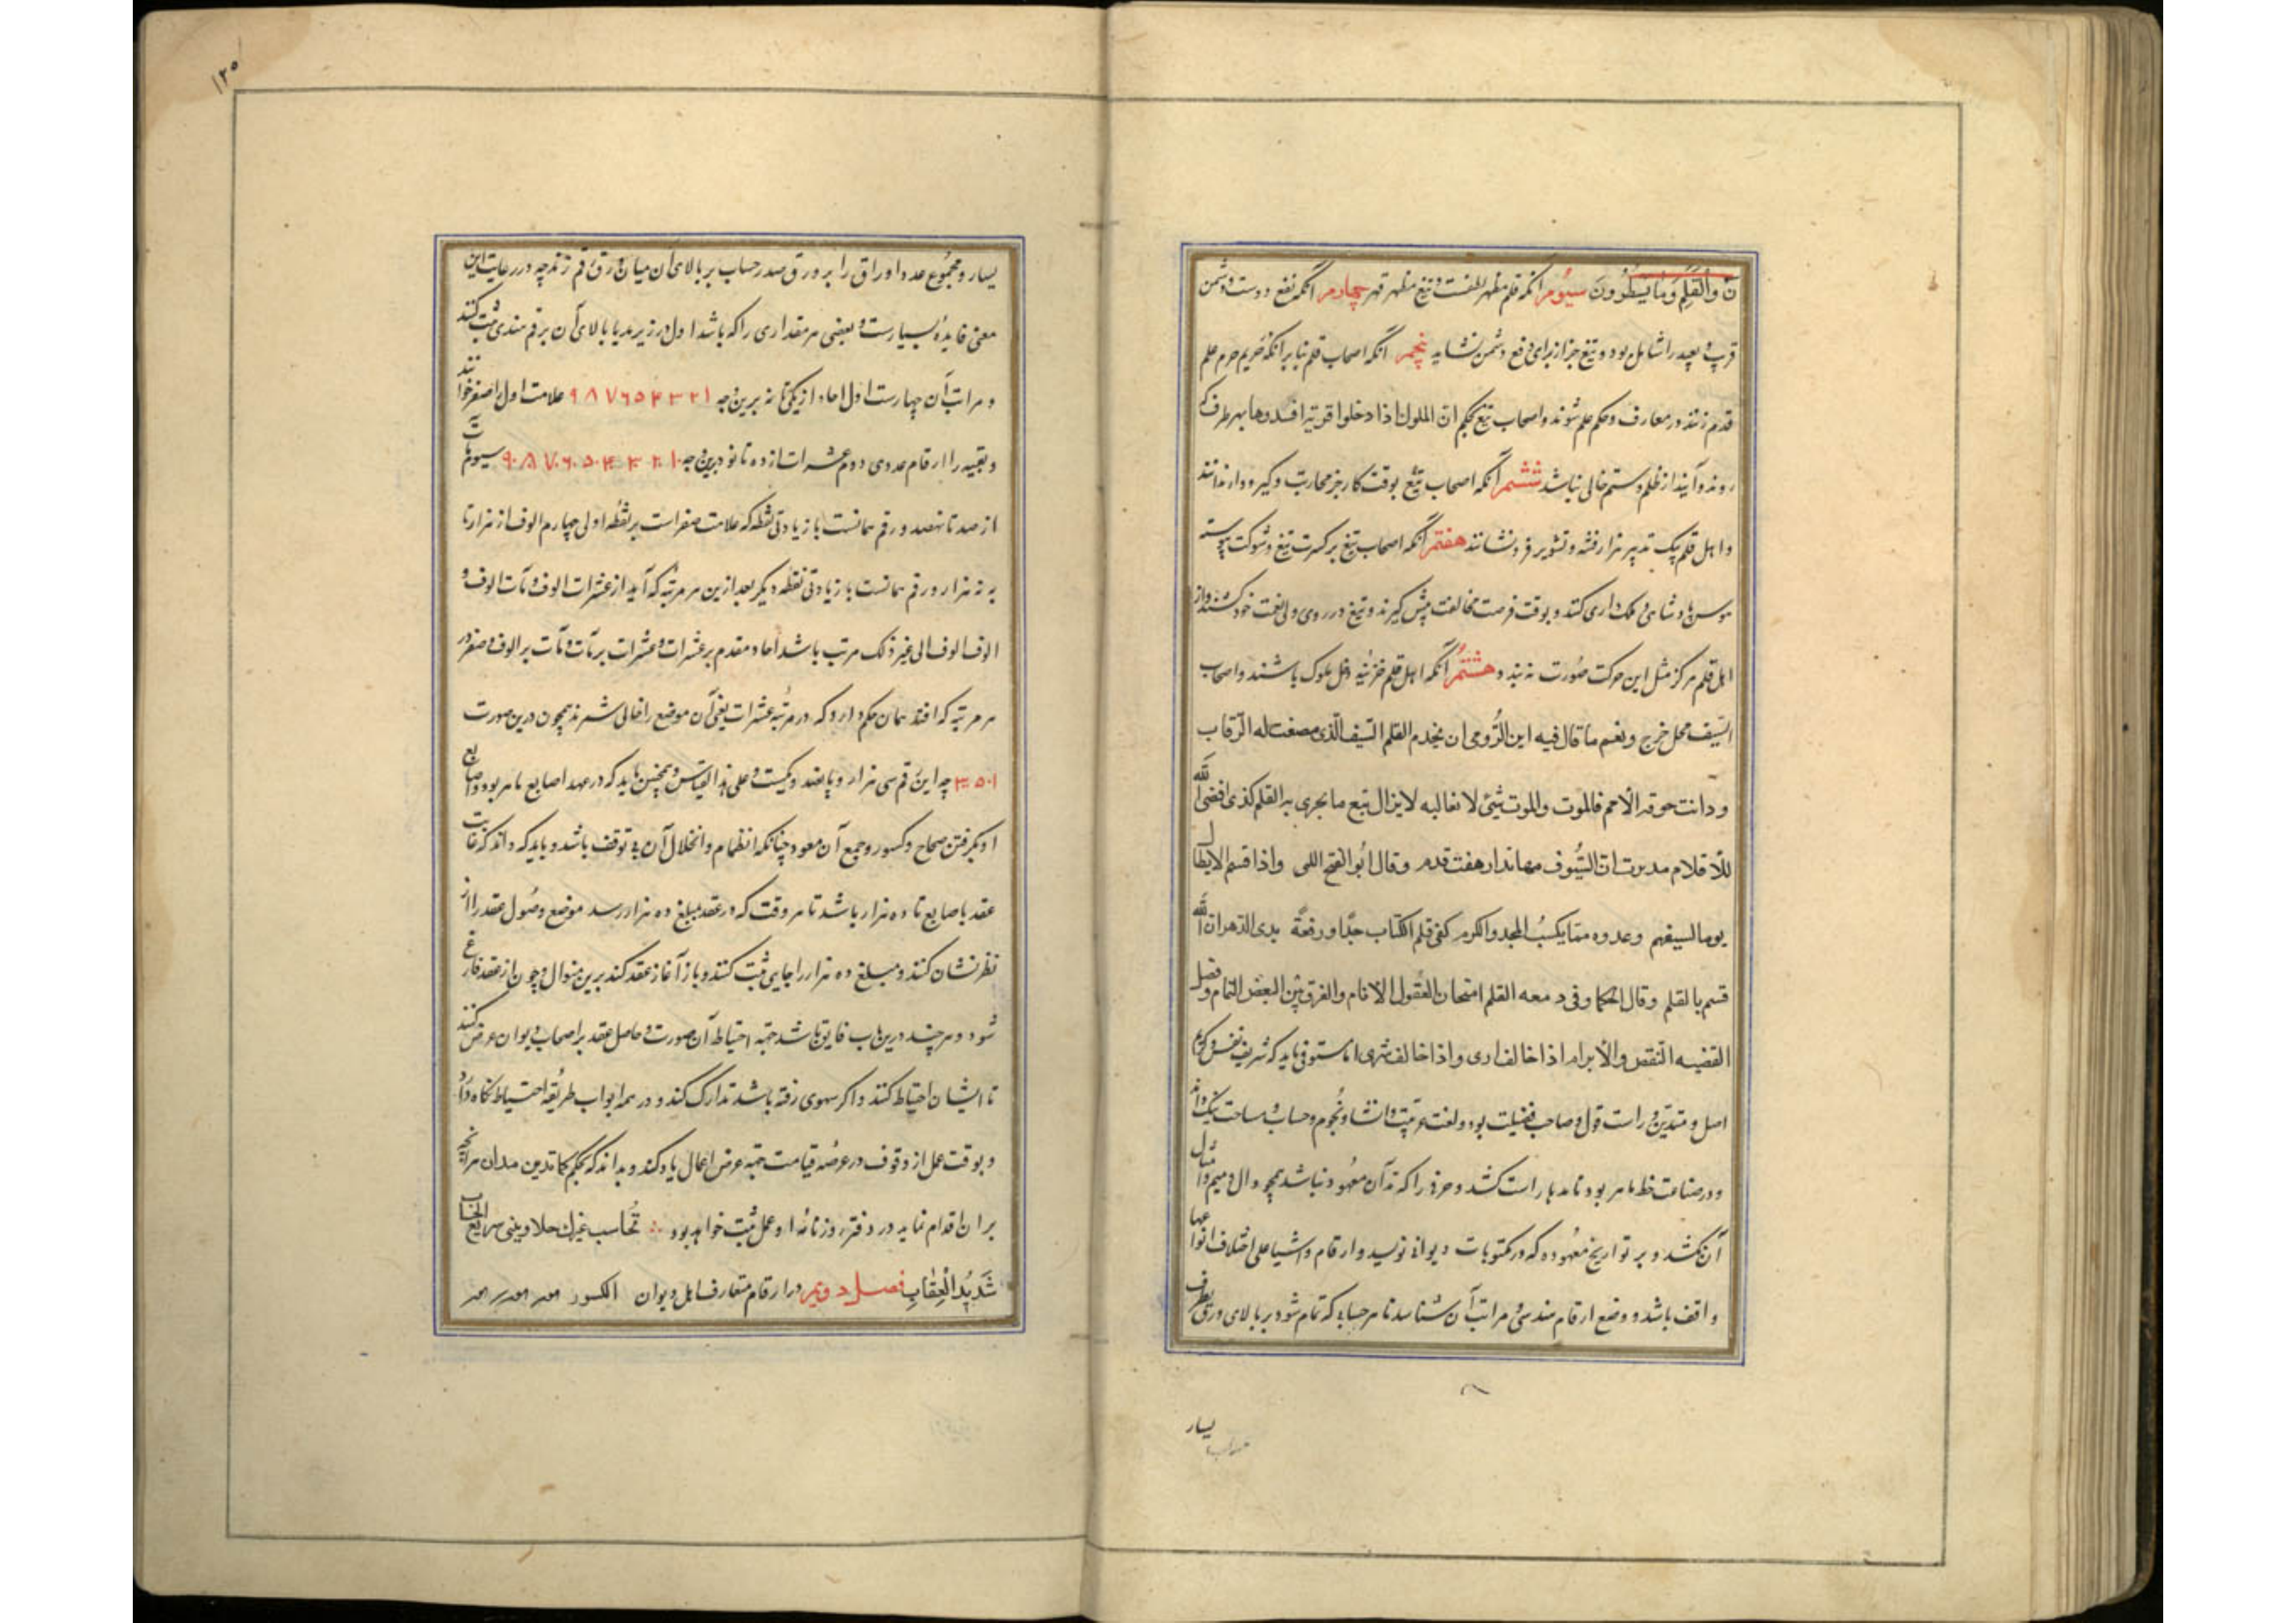 ن وَالْقَلَمِ وَمَا يَسْطُرُونَ سیوم آنکه قلم مظهر لطفست و تیغ مظهر قهر چهارم آنکه نفع دوست و دشمن
قریب و بعید را شامل بود و تیغ جز از برای دفع دشمن نشاید پنجم آنکه اصحاب قلم بنا بر آنکه حریم حرم علم
قدم زنند در معارف و حکم علم شوند و اصحاب تیغ بحکم ان الملوک اذا دخلوا قریة افسدوها بهر طرف که
روند و آیند از ظلم و ستم خالی نباشد ششم آنکه اصحاب تیغ بوقت کار جز محاربت و گیر و دار ندانند
و اهل قلم بیک تدبیر هزار فتنه و تشویر فرو نشانند هفتم آنکه اصحاب تیغ بر کسرت تیغ و شوکت پیوسته
هوس پادشاهی و ملک داری کنند و بوقت فرصت مخالفت پیش گیرند و تیغ در روی ولی نعمت خود کشند و از
اهل قلم هرگز مثل این حرکت صورت نبندد هشتم آنکه اهل قلم خزینه دخل ملوک باشند و اصحاب
السّیف محل خرج و نعم ما قال فیه ابن الرُّومی ان یخدم القلم السّیف الّذی مضعت له الرّقاب
ودانت حوفه الامم فالموت والموت شیئ لا نغالبه لا یزال یتبع ما یجری به القلم کذی اقضی الله
للاقلام مد بریت انّ السّیوف مهاندار هفت قدم وقال ابو الفتح اللی واذا قسم الابطال
یوما لسیفهم وعدوه مما یکسبُ المجد والکرم کفی قلم الکتاب جدّا ورفعة بدی الدهر ان الله
قسم بالقلم وقال الحکما وفی د معه القلم امتحان العقول الانام والفرق بین البعض التمام وفصل
القضیه النقص والابرام اذا خالف اری واذا خالف شهری اما مستوفی باید که شریف نفس و کریم
اصل و متدین و راست قول و صاحب فضیلت بود و لغت عربیت و انشا و نجوم و حساب و مساحت نیک داند
و در صناعت خط ماهر بود تا مدها راست کشد و حرفی را که مدّ آن معهود نباشد همچو دال و میم و امثال
آن نکشد و بر تواریخ معهوده که در مکتوبات دیوانی نویسد و ارقام و اشیا علی اختلاف انواعها
واقف باشد و وضع ارقام هندسی و مراتب آن شناسد تا هر حسابی که تمام شود بر بالای ورق بطرف
یسار
۱۲۵
یسار و مجموع عدد اوراق را بر ورق صدر حساب بر بالای آن میان ورق رقم زند چه در رعایت این
معنی فایده بسیارست و بعضی هر مقداری را که باشد اول در زیر مد یا بالای آن برقم هندی ثبت کنند
و مراتب آن چهارست اول احاد از یکی تا نه برین وجه ۱ ۲ ۳ ۴ ۵ ۶ ۷ ۸ ۹ علامت اول را صفر خوانند
و بقیه را ارقام عددی دوم عشرات از ده تا نود برین وجه ۱۰ ۲۰ ۳۰ ۴۰ ۵۰ ۶۰ ۷۰ ۸۰ ۹۰ سیوم مآت
از صد تا نهصد و رقم همانست با زیادتی نقطه که علامت صفر است بر نقطه اولی چهارم الوف از هزار تا
به نه هزار و رقم همانست با زیادتی نقطه دیگر بعد ازین هر مرتبه که آید از عشرات الوف و مآت الوف و
الوف الوف الی غیر ذلک مرتب باشد احاد مقدم بر عشرات و عشرات بر مآت و مآت بر الوف و صفر در
هر مرتبه که افتد همان حکم دارد که در مرتبه عشرات یعنی آن موضع را خالی شمرند همچون درین صورت
۳۰۵۰۱ چه این رقم سی هزار و پانصد و یکیست و علی هذا القیاس و همچنین باید که در عهد اصابع ماهر بود و اصابع
او بگرفتن صحاح و کسور و جمع آن معود چنانکه انظمام و انخلال آن بی توقف باشد و باید که داند که غایت
عقد باصابع تا ده هزار باشد تا هر وقت که در عقد مبلغ ده هزار رسد موضع وصول عقد را از
نظر نشان کنند و مبلغ ده هزار را جایی ثبت کنند و باز آغاز عقد کند برین منوال و چون از عقد فارغ
شود و هر چند درین باب فایق باشد جهته احتیاط آن صورت و حاصل عقد بر اصحاب دیوان عرض کنند
تا ایشان احتیاط کنند و اگر سهوی رفته باشد تدارک کند و در همه ابواب طریقه احتیاط نگاه دارد
و بوقت عمل از وقوف در عرصه قیامت جهته عرض اعمال یاد کند و بداند که بحکم کما تدین تدان هر آنچه
بر آن اقدام نماید در دفتر روزنامه او عمل ثبت خواهد بود ∴ تُحاسب سریع الحساب
شَدِیدُ الْعِقٰابِ فصل دویم در ارقام متعارف اهل دیوان الکسور